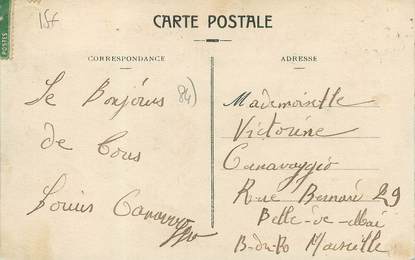 15f
CARTE POSTALE
CORRESPONDANCE
ADRESSE
Le Bonjours
de Tous
Louis Canavaggio
84)
Mademoiselle
Victorine
Canavaggio
Rue Bernard 29
Belle-de-Mai
B-du-Ro Marseille
POSTES